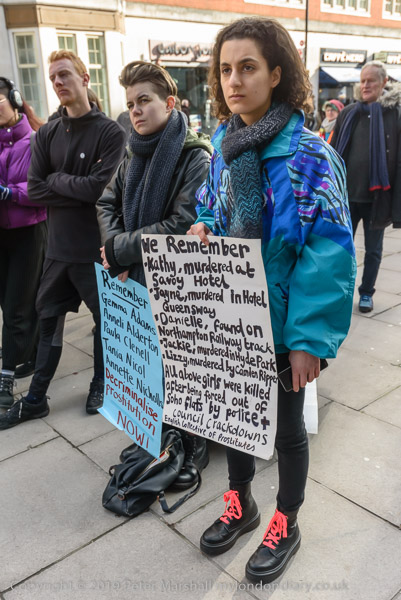 We Remember
-Kathy, murdered at
Savoy Hotel
-Jayne, murdered in Hotel
Queensway
-Danielle, found on
Northampton Railway track
-Jackie, murdered in Hyde Park
-Lizzy, murdered by Camden Ripper
All above girls were killed
after being forced out of
Soho flats by police +
Council Crackdowns
English Collective of Prostitutes
Remember
Gemma Adams
Anneli Alderton
Paula Clenell
Tania Nicol
Annette Nicholls
Decriminalise
prostitution
NOW!
Copyright © 2019 Peter Marshall mylondondiary.co.uk